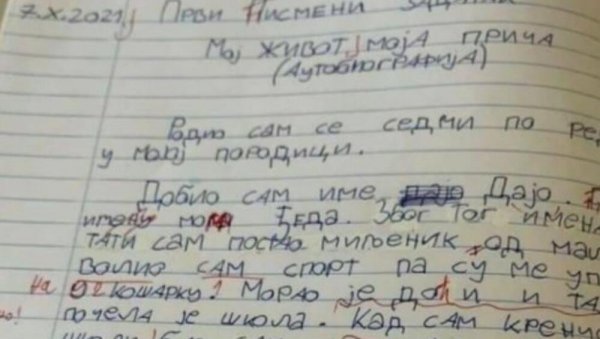 7.X.2021. Први писмени задатак
Мој живот, моја прича
(Аутобиографија)
Родио сам се седми по ре
у мојој породици.
Добио сам име Дајо.
имену мога ђеда. Због тог имена
тати сам постао миљеник. Од мал
Волио сам спорт па су ме уп
на кошарку! Морао је доћи и та
почела је школа. Кад сам крену